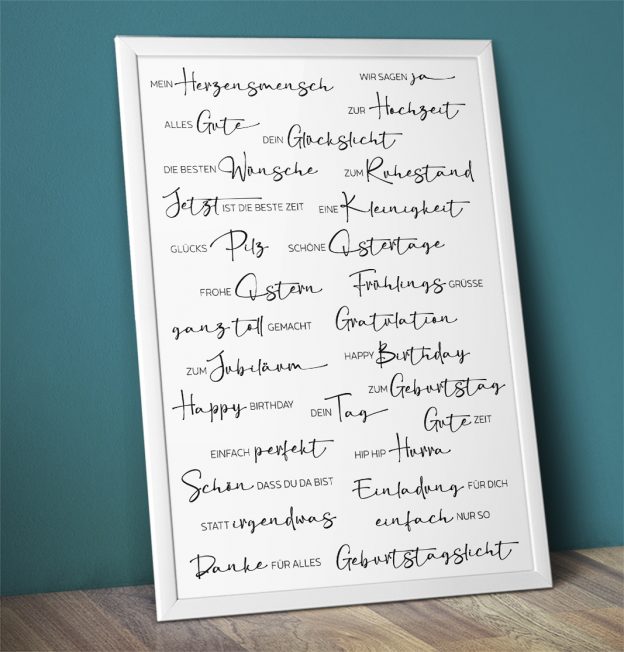 MEIN Herzensmensch
WIR SAGEN ja
ZUR Hochzeit
ALLES Gute
DEIN Glückslicht
DIE BESTEN Wünsche
ZUM Ruhestand
Jetzt IST DIE BESTE ZEIT
EINE Kleinigkeit
GLÜCKS Pilz
SCHÖNE Ostertage
FROHE Ostern
Frühlings GRÜSSE
ganz toll GEMACHT
Gratulation
ZUM Jubiläum
HAPPY Birthday
ZUM Geburtstag
Happy BIRTHDAY
DEIN Tag
Gute ZEIT
EINFACH perfekt
HIP HIP Hurra
Schön DASS DU DA BIST
Einladung FÜR DICH
STATT irgendwas
einfach NUR SO
Danke FÜR ALLES
Geburtstagslicht